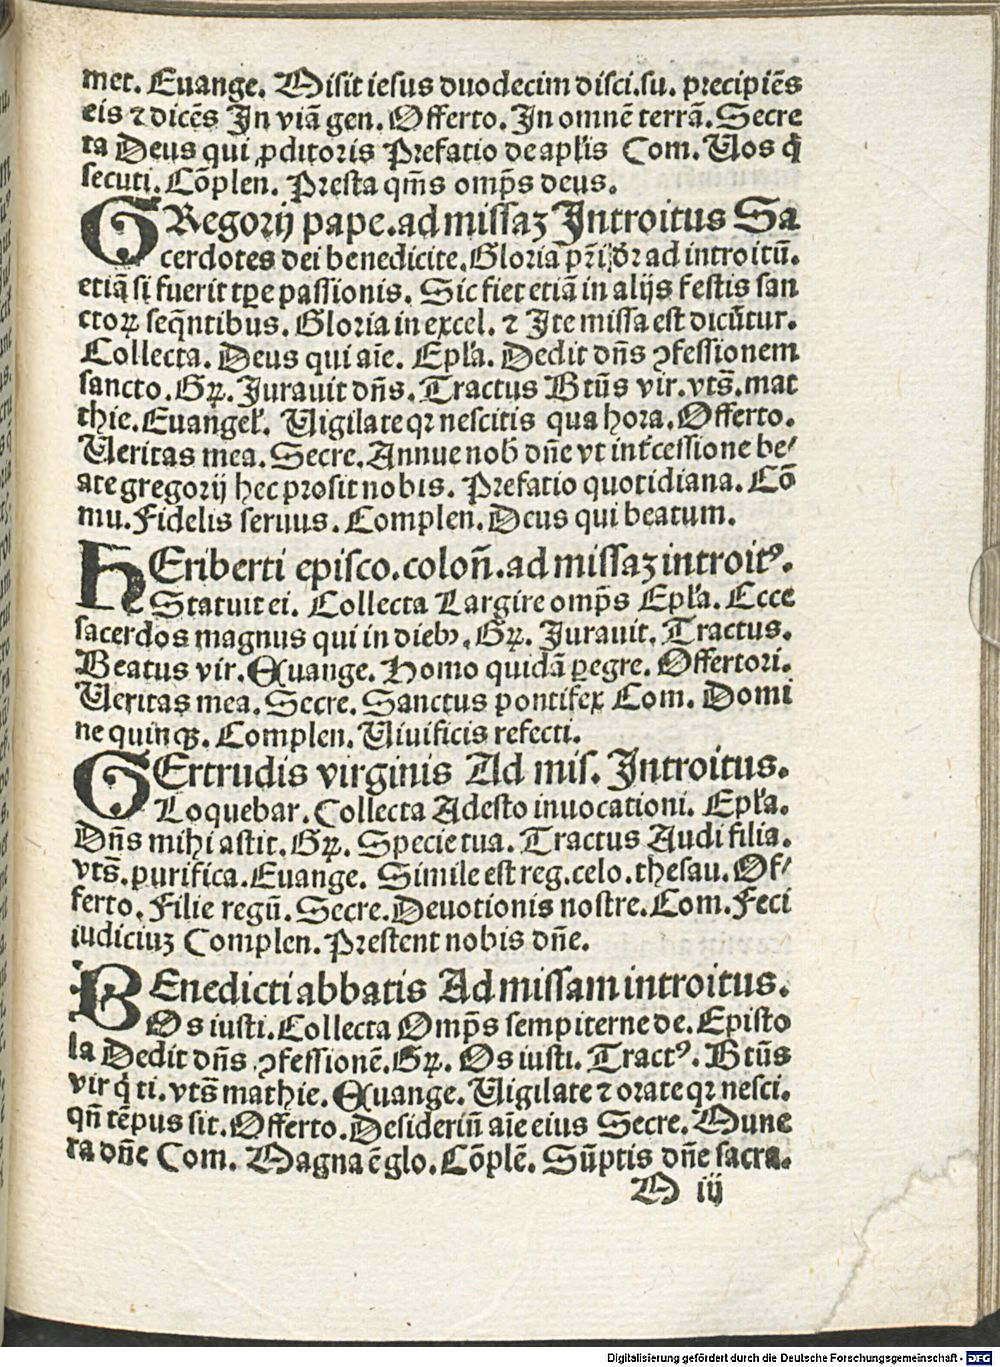 met. Euange. Misit iesus duodecim disci.su. precipiẽs
eis ⁊ dicẽs In viã gen. Offerto. In omnẽ terrã. Secre
ta Deus qui ꝓditoris Prefatio de apl̃is Com. Uos q̃
secuti. Cõplen. Presta qm̃s omp̃s deus.
GRegorij pape. ad missaʒ Introitus Sa
cerdotes dei benedicite. Gloria pr̃i dr̃ ad introitũ.
etiã si fuerit tꝑe passionis. Sic fiet etiã in alijs festis san
ctoꝝ seq̃ntibus. Gloria in excel. ⁊ Ite missa est dicũtur.
Collecta. Deus qui aĩe. Epl̃a. Dedit dñs ꝯfessionem
sancto. Gꝝ. Jurauit dñs. Tractus Btũs vir. vts̃. mat
thie. Euangel̃. Uigilate qꝛ nescitis qua hora. Offerto.
Ueritas mea. Secre. Annue nob̃ dñe vt int̃cessione be⸗
ate gregorij hec prosit nobis. Prefatio quotidiana. Cõ
mu. Fidelis seruus. Complen. Deus qui beatum.
HEriberti episco. coloñ. ad missaʒ introitꝰ.
Statuit ei. Collecta Largire omp̃s Epl̃a. Ecce
sacerdos magnus qui in diebꝰ. Gꝝ. Jurauit. Tractus.
Beatus vir. Euange. Homo quidã ꝑegre. Offertori.
Ueritas mea. Secre. Sanctus pontifex Com. Domi
ne quinqꝫ. Complen. Uiuificis refecti.
GErtrudis virginis Ad mis. Introitus.
Loquebar. Collecta Adesto inuocationi. Epl̃a.
Dñs mihi astit. Gꝝ. Specie tua. Tractus Audi filia.
vts̃. purifica. Euange. Simile est reg. celo. thesau. Of⸗
ferto. Filie regũ. Secre. Deuotionis nostre. Com. Feci
iudiciuʒ Complen. Prestent nobis dñe.
BEnedicti abbatis Ad missam introitus.
Os iusti. Collecta Omp̃s sempiterne de. Episto
la Dedit dñs ꝯfessionẽ. Gꝝ. Os iusti. Tractꝰ. Btũs
vir q̃ ti. vts̃ mathie. Euange. Uigilate ⁊ orate qꝛ nesci.
qñ tẽpus sit. Offerto. Desideriũ aĩe eius Secre. Mune
ra dñe Com. Magna ẽ glo. Cõplẽ. Sũptis dñe sacra.
M iij
Digitalisierung gefördert durch die Deutsche Forschungsgemeinschaft - DFG